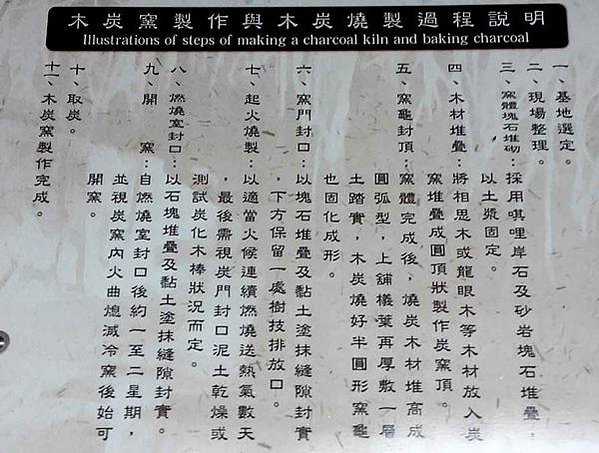 木炭窯製作與木炭燒製過程說明
Illustrations of steps of making a charcoal kiln and baking charcoal
一、基地選定。
二、現場整理。
三、窯體塊石堆砌：採用唭哩岸石及砂岩塊石堆疊，
以土漿固定。
四、木材堆疊：將相思木或龍眼木等木材放入炭
窯堆疊成圓頂狀製作炭窯頂。
五、窯龜封頂：窯體完成後，燒炭木材堆高成
圓弧型，上舖樣葉再厚敷一層
土踏實，木炭燒好半圓形窯龜
也固化成形。
六、窯門封口：以塊石堆疊及黏土塗抹縫隙封實
，下方保留一處樹技排放口。
七、起火燒製：以適當火候連續燃燒送熱氣數天
，最後需視炭門封口泥土乾燥或
測試炭化木棒狀況而定。
八、燃燒室封口：以石塊堆疊及黏土塗抹縫隙封實。
九、開　窯：自燃燒室封口後約一至二星期，
並視炭窯內火曲熄滅冷窯後始可
開窯。
十、取炭。
十一、木炭窯製作完成。